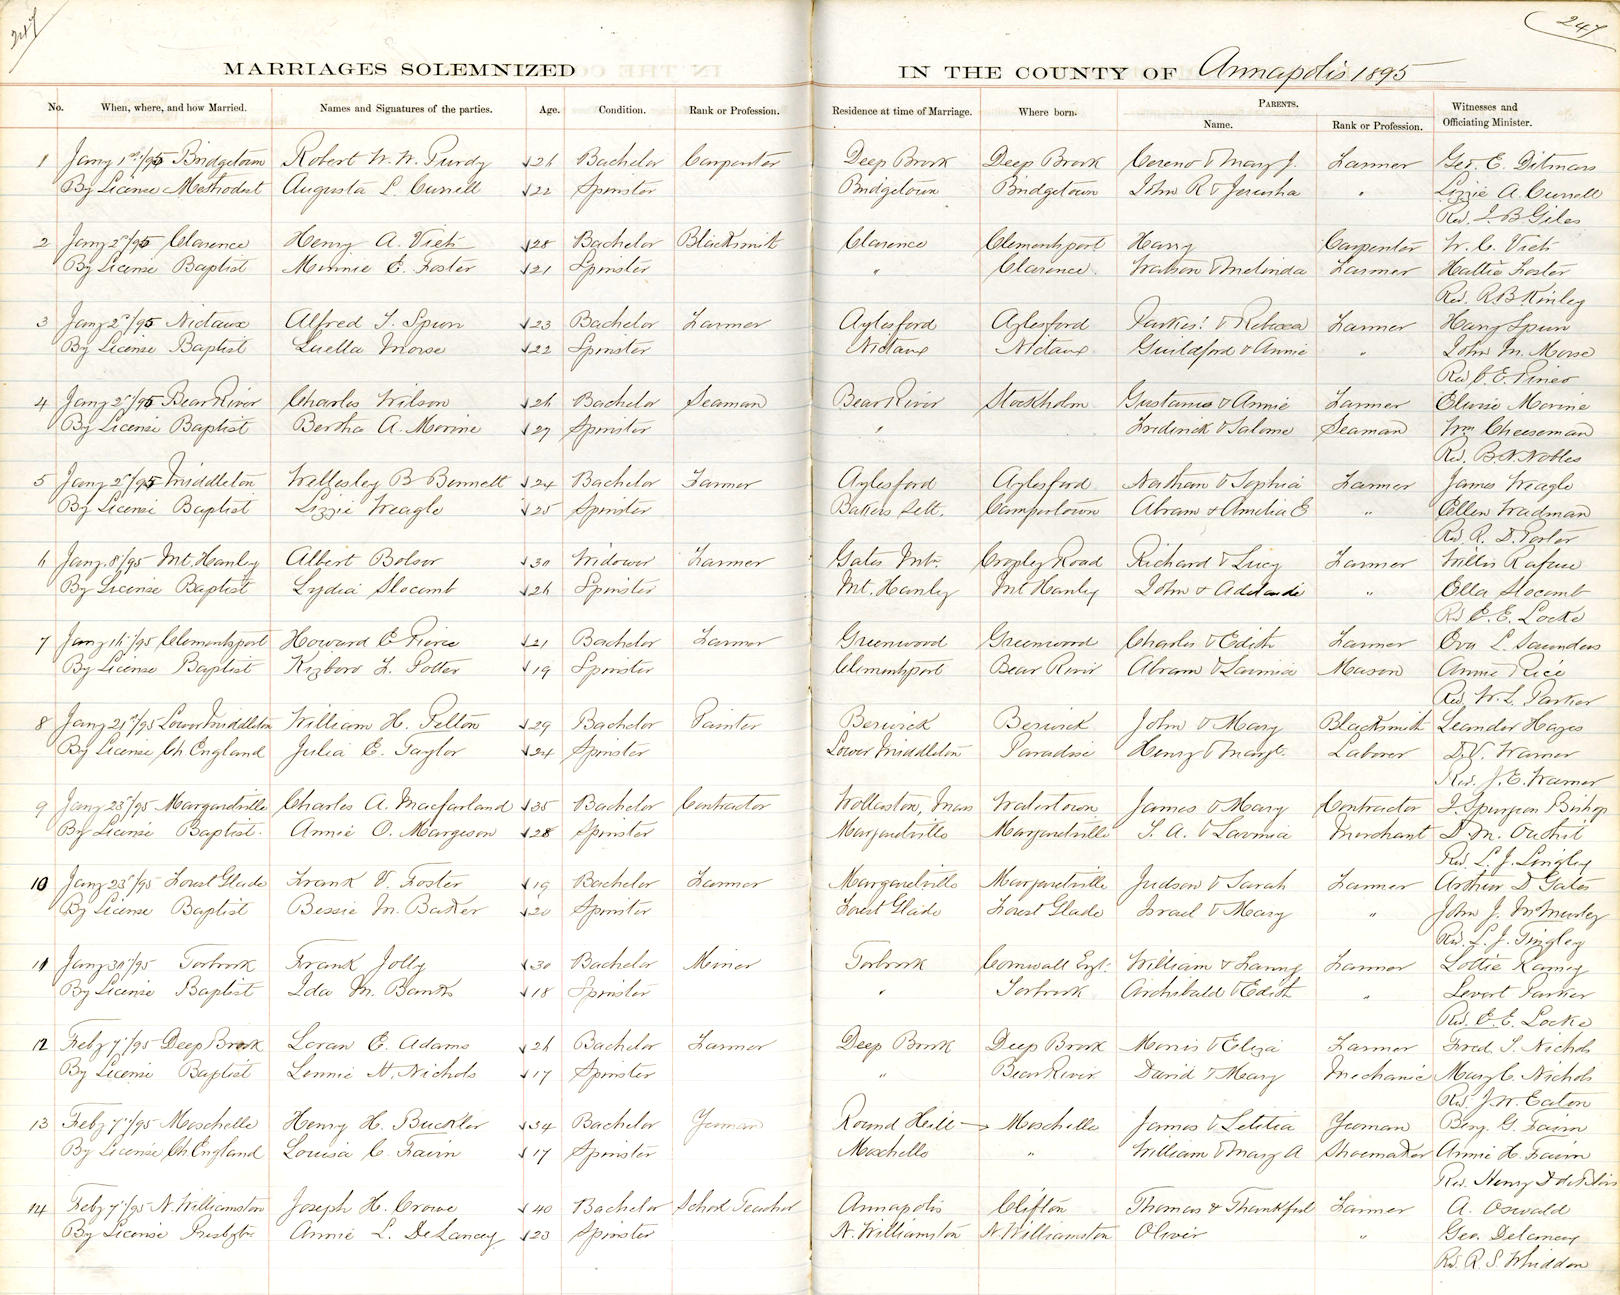 247
247
MARRIAGES SOLEMNIZED IN THE COUNTY OF Annapolis 1895
No. When, where, and how Married. Names and Signatures of the parties. Age. Condition. Rank or Profession. Residence at time of Marriage. Where born. PARENTS. Name. Rank or Profession. Witnesses and Officiating Minister.
1 Jany 1st/95 Bridgetown Robert W. W. Purdy 26 Bachelor Carpenter Deep Brook Deep Brook Cereno & Mary J. Farmer Geo. E. Ditmars
By License Methodist Augusta L Currell 22 Spinster Bridgetown Bridgetown John R & Jerusha " Lizzie A. Currell
Rev. J. B Giles
2 Jany 2"/95 Clarence Henry A. Vieth 28 Bachelor Blacksmith Clarence Clementsport Harry Carpenter W. C. Vieth
By License Baptist Minnie E. Foster 21 Spinster " Clarence Watson & Melinda Farmer Hattie Foster
Rev. R. B Kinley
3 Jany 2"/95 Nictaux Alfred T. Spurr 23 Bachelor Farmer Aylesford Aylesford & Rebecca Farmer Harry Spurr
By License Baptist Luella Morse 22 Spinster Nictaux Nictaux Guildford & Annie " John M. Morse
Rev. C. E. Pineo
4 Jany 2"/95 Bear River Charles Wilson 26 Bachelor Seaman Bear River Stockholm Gustanus & Annie Farmer Elvsie Morine
By License Baptist Bertha A. Morine 27 Spinster " Fredrick & Salome Seaman Wm Cheeseman
Rev. B. N. Nobles
5 Jany 2"/95 Middleton Wellesley B Bennett 24 Bachelor Farmer Aylesford Aylesford Nathan & Sophia Farmer James Weagle
By License Baptist Lizzie Weagle 25 Spinster Bakers Sett. Campertown Abram & Amelia E " Ellen Wadman
Rev. R. D. Porter
6 Jany 8"/95 Mt. Hanley Albert Bolsor 30 Widower Farmer Gates Mtn. Cropley Road Richard & Lucy Farmer Willis Rafuse
By License Baptist Lydia Slocomb 26 Spinster Mt. Hanley Mt Hanley John & Adelaide " Ella Slocomb
Rev E. E. Locke
7 Jany 16"/95 Clementsport Howard E Pierce 21 Bachelor Farmer Greenwood Greenwood Charles & Edith Farmer Ora L. Saunders
By License Baptist Kizboro F. Potter 19 Spinster Clementsport Bear River Abram & Lavinia Mason Annie Rice
Rev. W. L. Parker
8 Jany 21st/95 Lower Middleton William H. Felton 29 Bachelor Painter Berwick Berwick John & Mary Blacksmith Leander Hayes
By License Ch England Julia E. Taylor 24 Spinster Lower Middleton Paradise Henry & Mary E. Laborer Warner
Rev. J. E. Warner
9 Jany 23"/95 Margaretville Charles A. Macfarland 35 Bachelor Contractor Wollaston, Mass Watertown James & Mary Contractor J. Spurgeon Bishop
By License Baptist. Annie O. Margeson 28 Spinster Margaretville Margaretville T. A. & Lavinia Merchant D. M. Outhit
Rev. L. J. Tingley
10 Jany 23"/95 Forest Glade Frank V. Foster 19 Bachelor Farmer Margaretville Margaretville Judson & Sarah Farmer Arthur D Gates
By License Baptist Bessie M. Baker 20 Spinster Forest Glade Forest Glade Israel & Mary " John J.
Rev. L. J. Tingley
11 Jany 30"/95 Torbrook Frank Jolly 30 Bachelor Miner Torbrook Cornwall Eng. William & Fanny Farmer Lottie Ramey
By License Baptist Ida M. Banks 18 Spinster " Torbrook Archibald & Edith " Levert Parker
Rev. E. E. Locke
12 Feby 7"/95 Deep Brook Loran E. Adams 26 Bachelor Farmer Deep Brook Deep Brook Morris & Eliza Farmer Fred. S. Nichols
By License Baptist Lennie H. Nichols 17 Spinster " Bear River David & Mary Mechanic Mary C. Nichols
Rev. J. W. Eaton
13 Feby 7"/95 Moschelle Henry H. Buckler 34 Bachelor Yeoman Round Hill Moschelle James & Letitia Yeoman Benj. G. Fairn
By License Ch England Louisa C. Fairn 17 Spinster Moschelle " William & Mary A Shoemaker Annie H. Fairn
Rev. Henry D. deBlois
14 Feby 7"/95 N. Williamston Joseph H. Crowe 40 Bachelor School Teacher Annapolis Clifton Thomas & Thankful Farmer A. Oswald
By License Presbytn. Annie L. DeLancey 23 Spinster N. Williamston N. Williamston Oliver " Geo. Delancey
Rev. R. S. Whidden